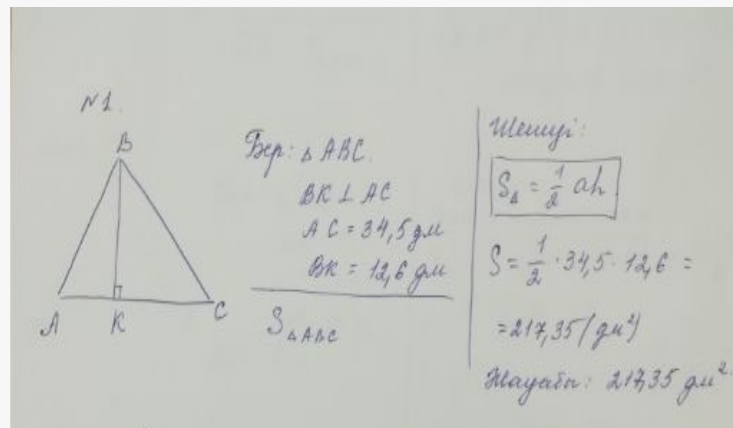 №1.
B
A K C
Бер: △ABC.
BK ⊥ AC
AC = 34,5 дм
BK = 12,6 дм
S△ABC
Шешуі:
S△ = 1/2 ah
S = 1/2 · 34,5 · 12,6 =
= 217,35 (дм²)
Жауабы: 217,35 дм².